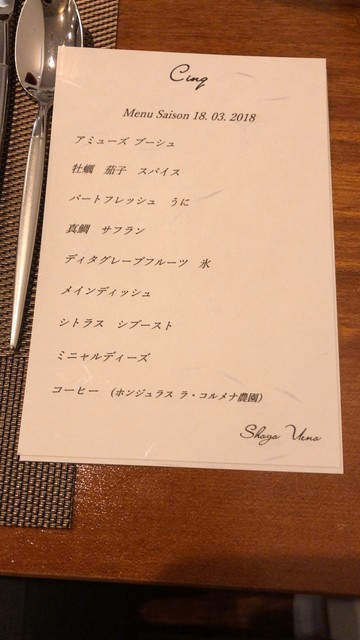 Cinq
Menu Saison 18. 03. 2018
アミューズ ブーシュ
牡蠣　茄子　スパイス
パートフレッシュ　うに
真鯛　サフラン
ディタグレープフルーツ　氷
メインディッシュ
シトラス　シブースト
ミニャルディーズ
コーヒー　(ホンジュラス ラ・コルメナ農園)
Shogo Ueno